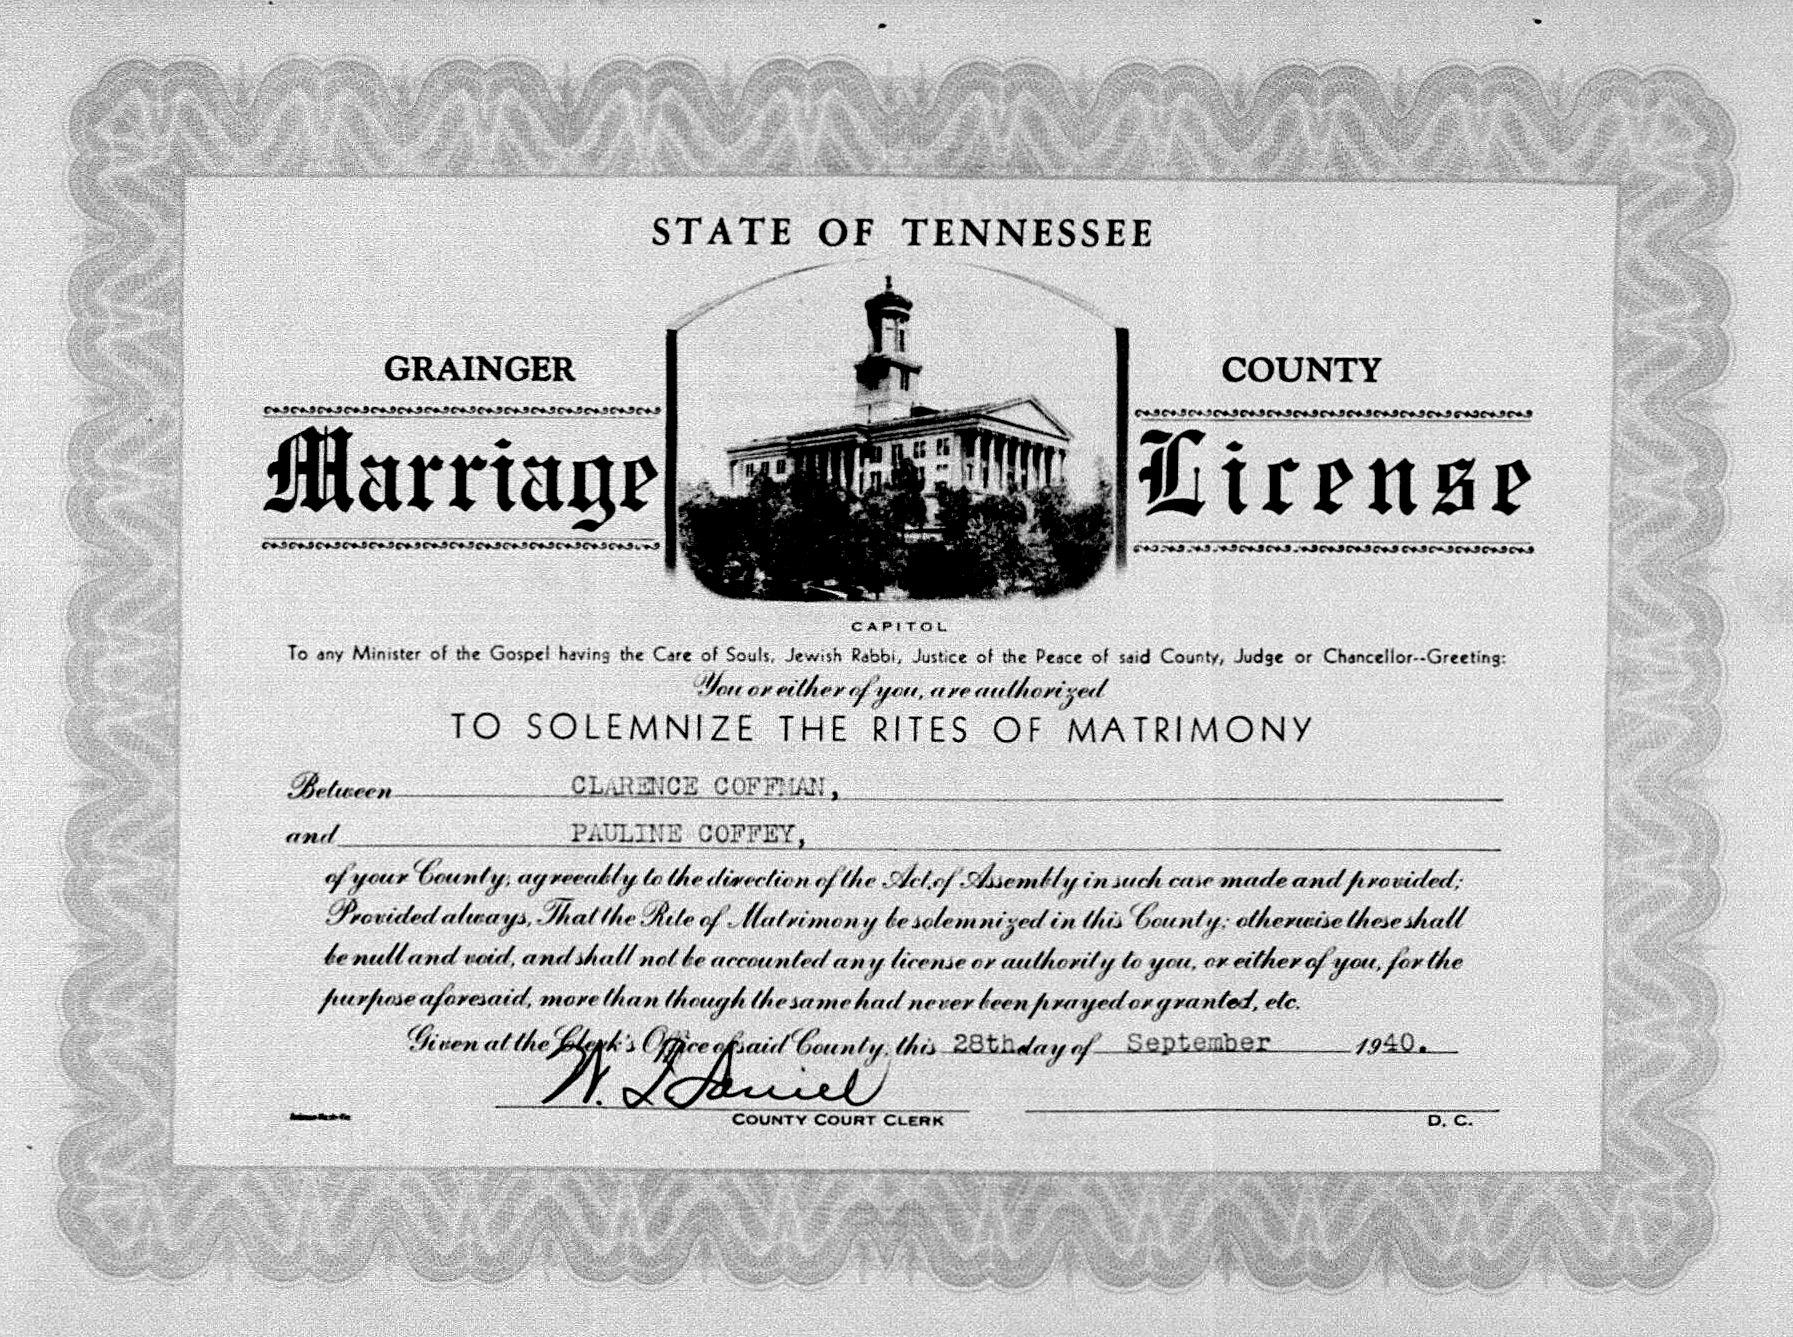 STATE OF TENNESSEE
GRAINGER COUNTY
Marriage License
CAPITOL
To any Minister of the Gospel having the Care of Souls, Jewish Rabbi, Justice of the Peace of said County, Judge or Chancellor--Greeting:
You or either of you, are authorized
TO SOLEMNIZE THE RITES OF MATRIMONY
Between CLARENCE COFFMAN,
and PAULINE COFFEY,
of your County, agreeably to the direction of the Act of Assembly in such case made and provided;
Provided always, That the Rite of Matrimony be solemnized in this County; otherwise these shall
be null and void, and shall not be accounted any license or authority to you, or either of you, for the
purpose aforesaid, more than though the same had never been prayed or granted, etc.
Given at the Clerk's Office of said County, this 28th day of September 1940.
W. L Daniel
COUNTY COURT CLERK D. C.